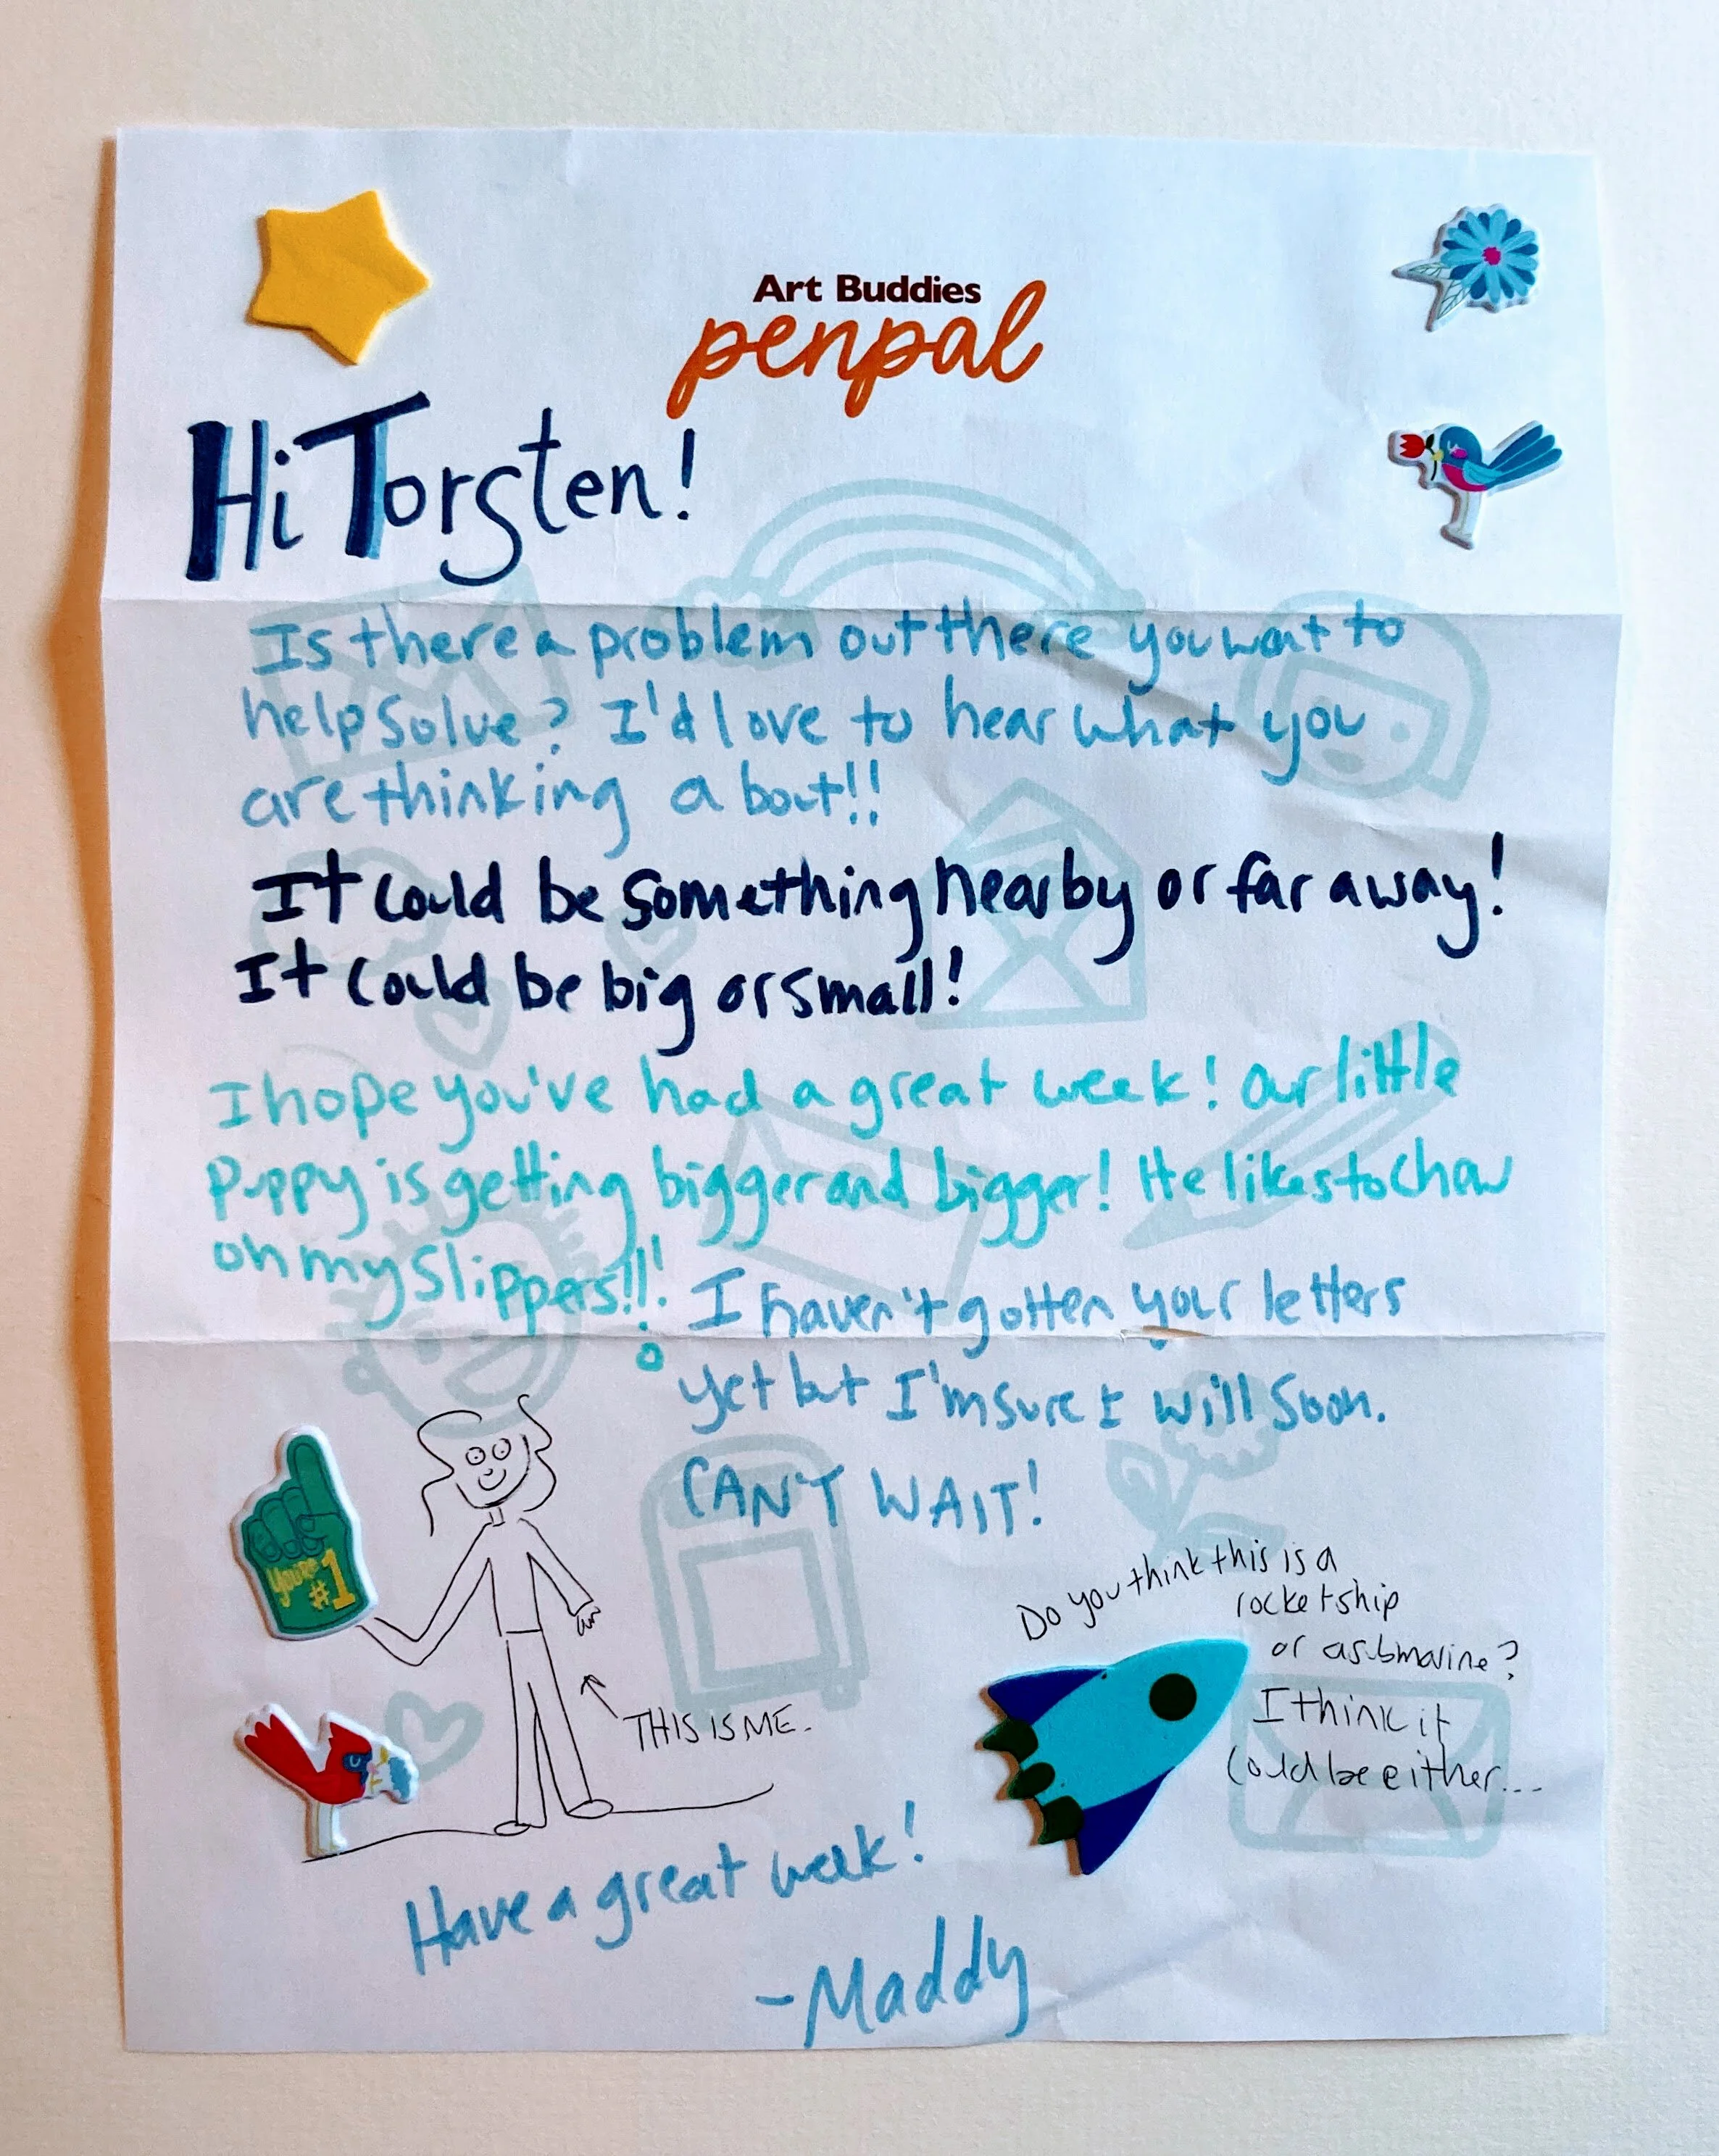 Art Buddies
penpal
Hi Torsten!
Is there a problem out there you want to
help solve? I'd love to hear what you
are thinking about!!
It could be something nearby or far away!
It could be big or small!
I hope you've had a great week! Our little
puppy is getting bigger and bigger! He likes to chew
on my slippers!!!
I haven't gotten your letters
yet but I'm sure I will soon.
CAN'T WAIT!
You're
#1
THIS IS ME.
Do you think this is a
rocketship
or a submarine?
I think it
could be either...
Have a great week!
-Maddy